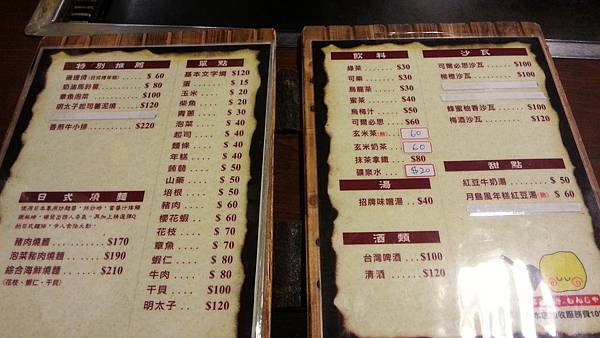 特別推薦
磯邊燒(日式烤年糕) $ 60
奶油馬鈴薯 $ 80
章魚泡菜 $100
明太子起司薯泥燒 $120
香煎牛小排 $220
日式燒麵
豬肉燒麵 $170
泡菜豬肉燒麵 $190
綜合海鮮燒麵 $210
(花枝、蝦仁、干貝)
單點
基本文字燒 $120
蛋 $ 15
玉米 $ 20
柴魚 $ 20
青蔥 $ 30
泡菜 $ 40
起司 $ 40
麵條 $ 40
年糕 $ 40
蒟蒻 $ 50
山藥 $ 50
培根 $ 50
豬肉 $ 60
櫻花蝦 $ 60
花枝 $ 70
章魚 $ 70
蝦仁 $ 80
牛肉 $ 80
干貝 $100
明太子 $120
飲料
綠茶 $30
可樂 $30
烏龍茶 $30
蜜茶 $40
烏梅汁 $50
可爾必思 $60
玄米茶(熱) 60
玄米奶茶 60
抹茶拿鐵 $80
礦泉水 $20
湯
招牌味噌湯 $40
酒類
台灣啤酒 $100
清酒 $120
沙瓦
可爾必思沙瓦 $100
柳橙沙瓦 $100
蜂蜜柚香沙瓦 $100
梅酒沙瓦 $120
甜點
紅豆牛奶湯 $ 50
月島風年糕紅豆湯(熱) $ 60
もんじゃ
本店加收服務費10%